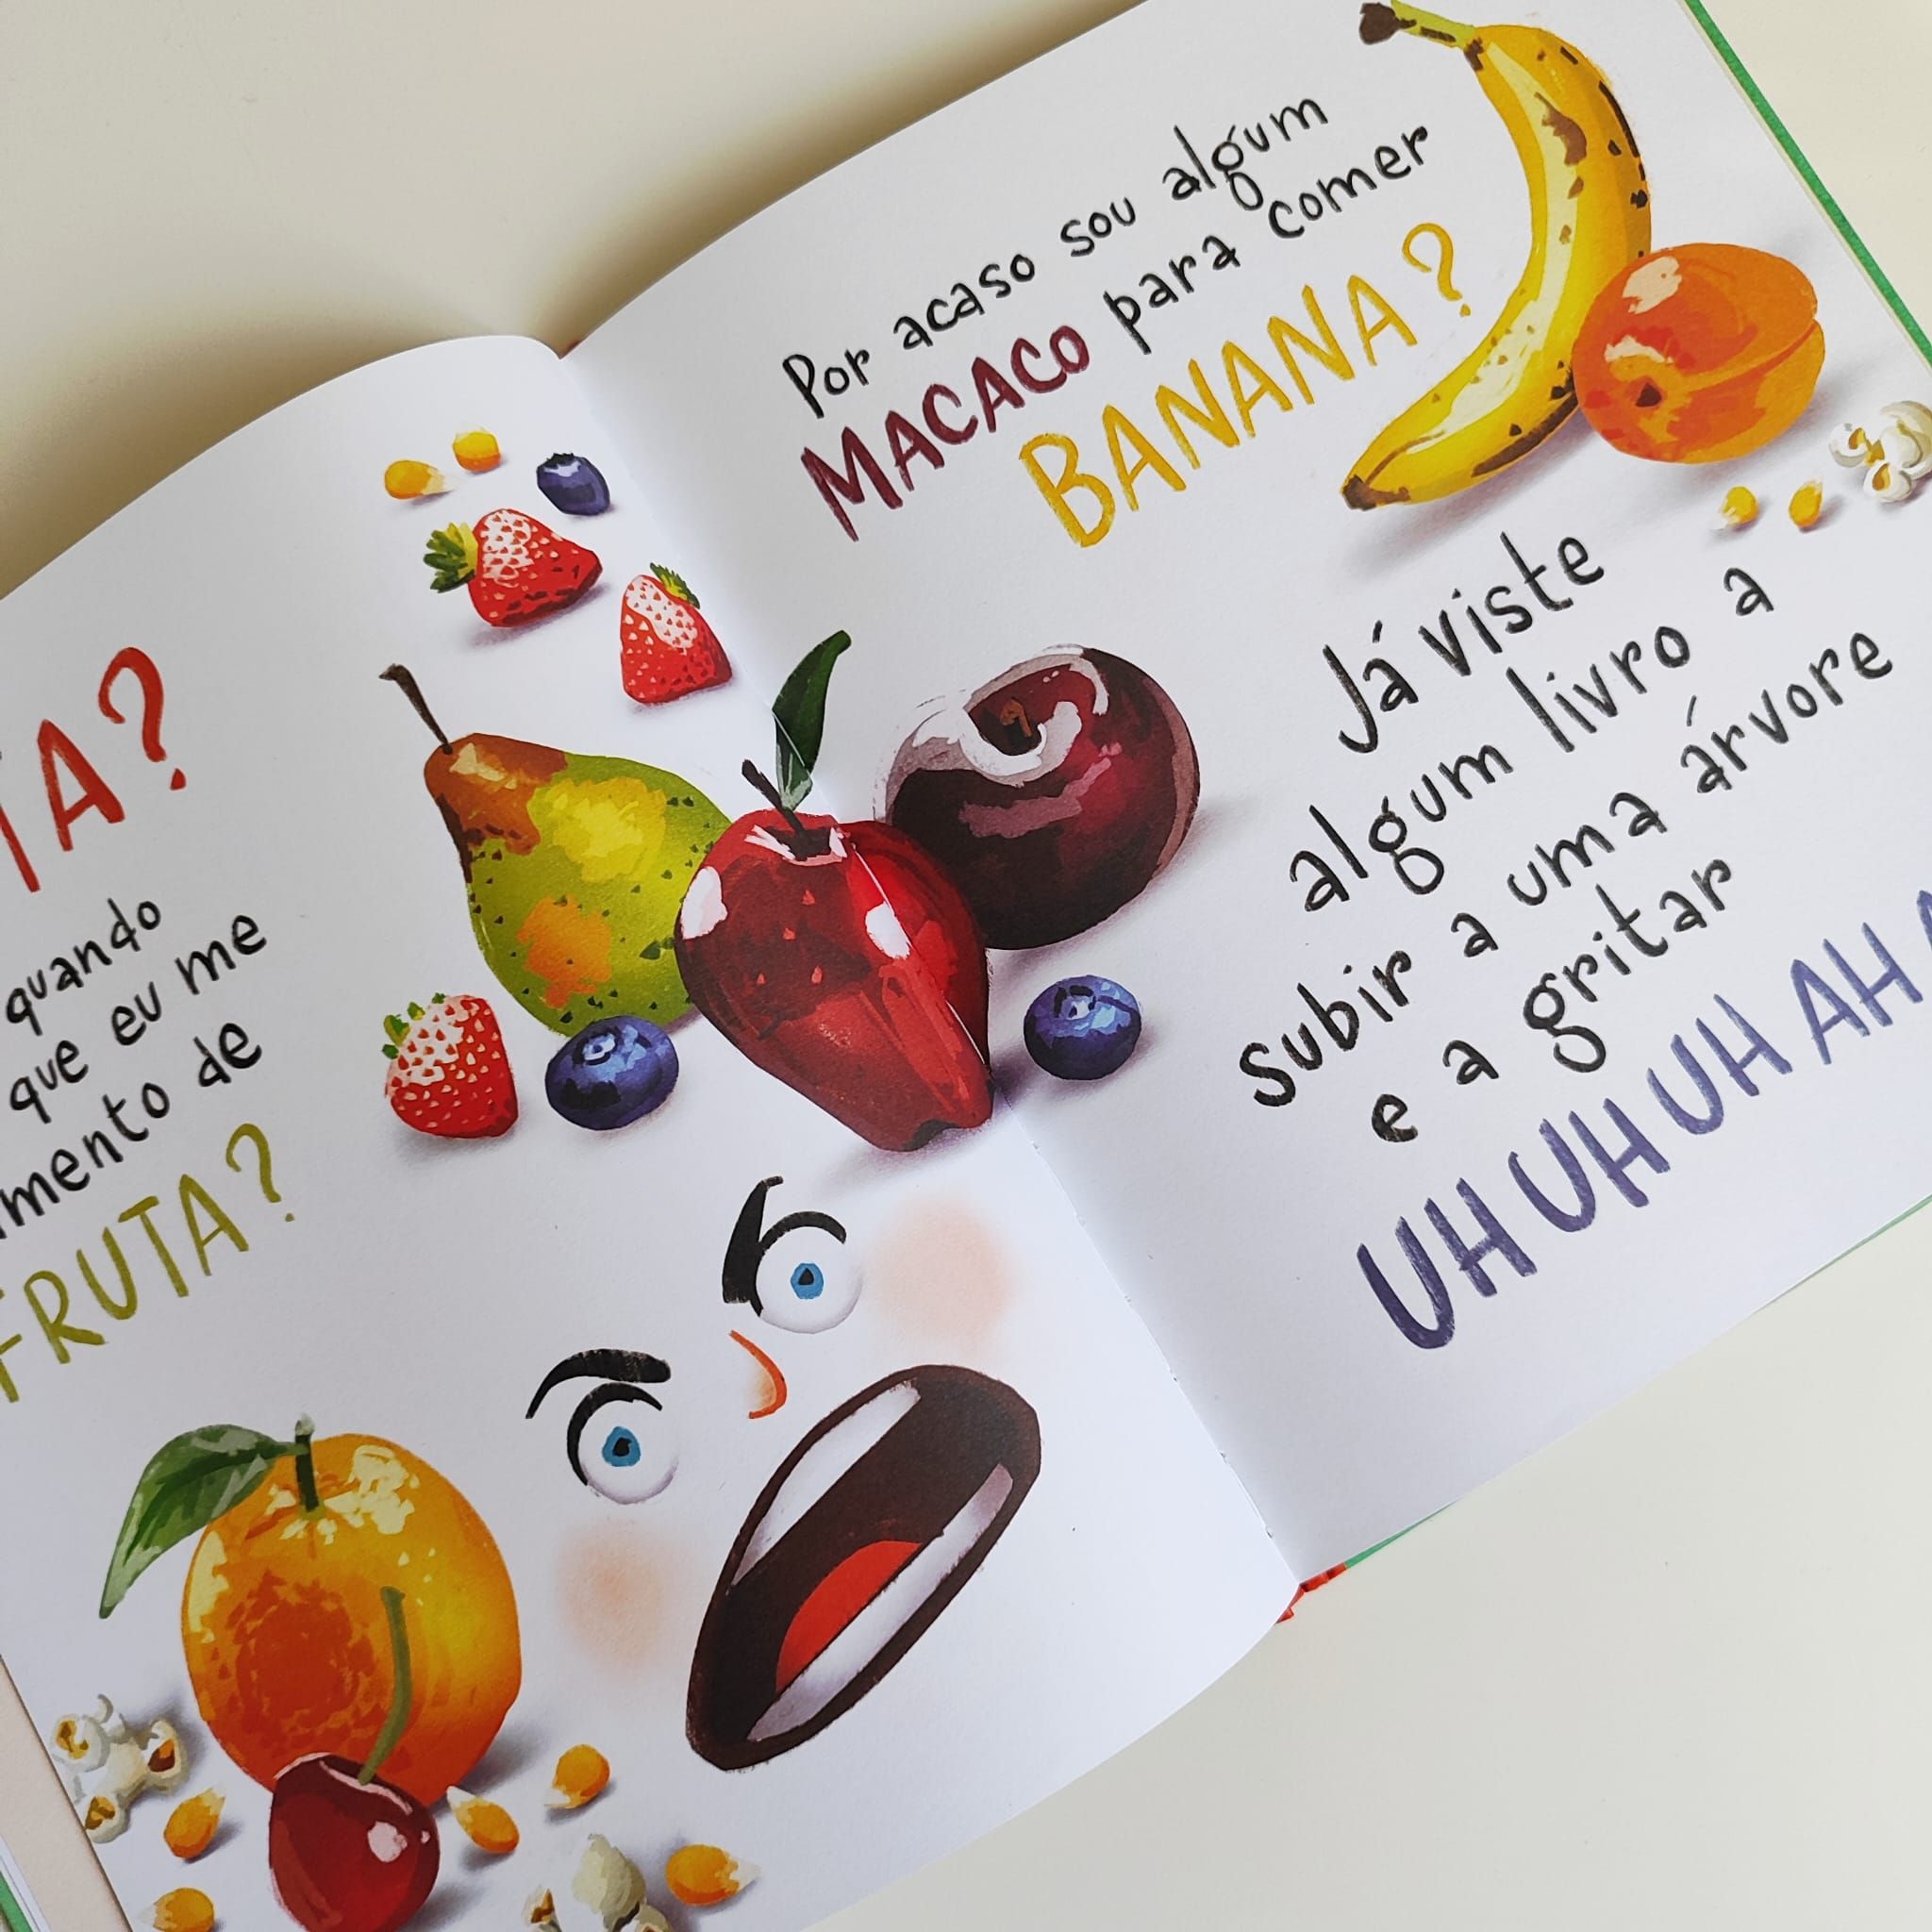 quando
que eu me
de
FRUTA?
Por acaso sou algum
MACACO para comer
BANANA?
Já viste
algum livro a
subir a uma árvore
e a gritar
UH UH UH AH